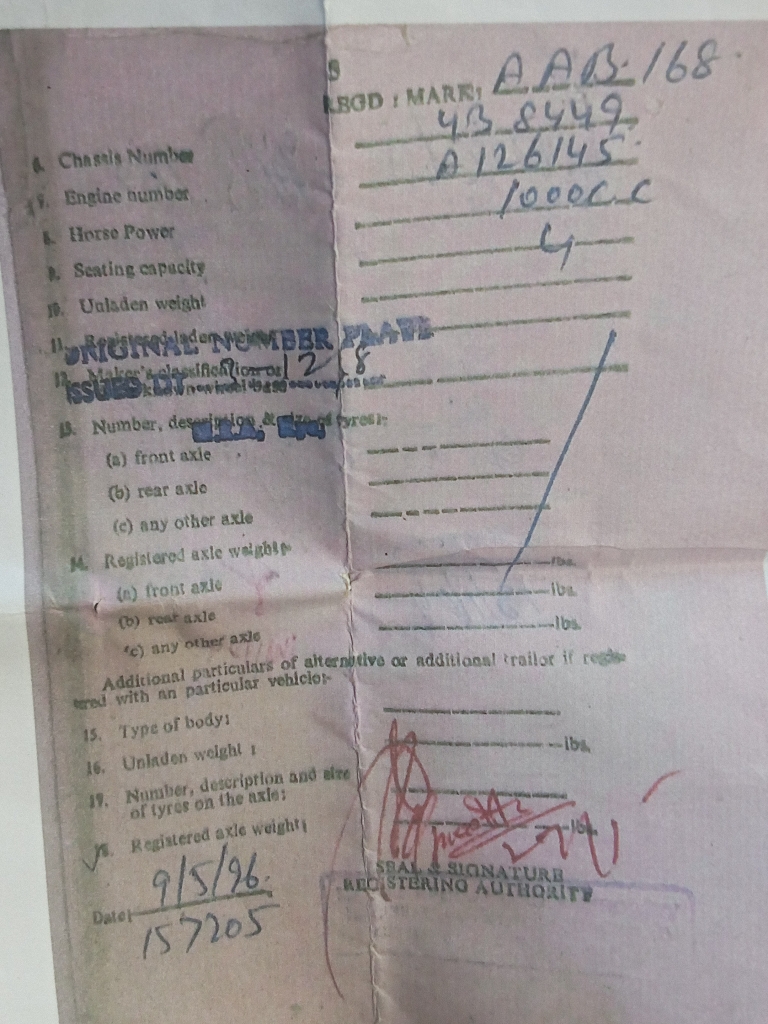 REGD : MARK: AAB.168.
4B 8449
6. Chassis Number A126145.
7. Engine number 1000C.C
8. Horse Power 4
9. Seating capacity
10. Unladen weight
11. Registered laden weight
ORIGINAL NUMBER PLATE
12. Maker's classification or
ISSUED
13. Number, description & size of tyres:-
(a) front axle
(b) rear axle
(c) any other axle
14. Registered axle weight:- lbs.
(a) front axle lbs.
(b) rear axle lbs.
(c) any other axle
Additional particulars of alternative or additional trailor if regis-
tered with an particular vehicle:-
15. Type of body:
16. Unladen weight : lbs.
17. Number, description and size
of tyres on the axle:
18. Registered axle weight; lbs.
SEAL & SIGNATURE
REGISTERING AUTHORITY
9/5/96.
Date:
157205